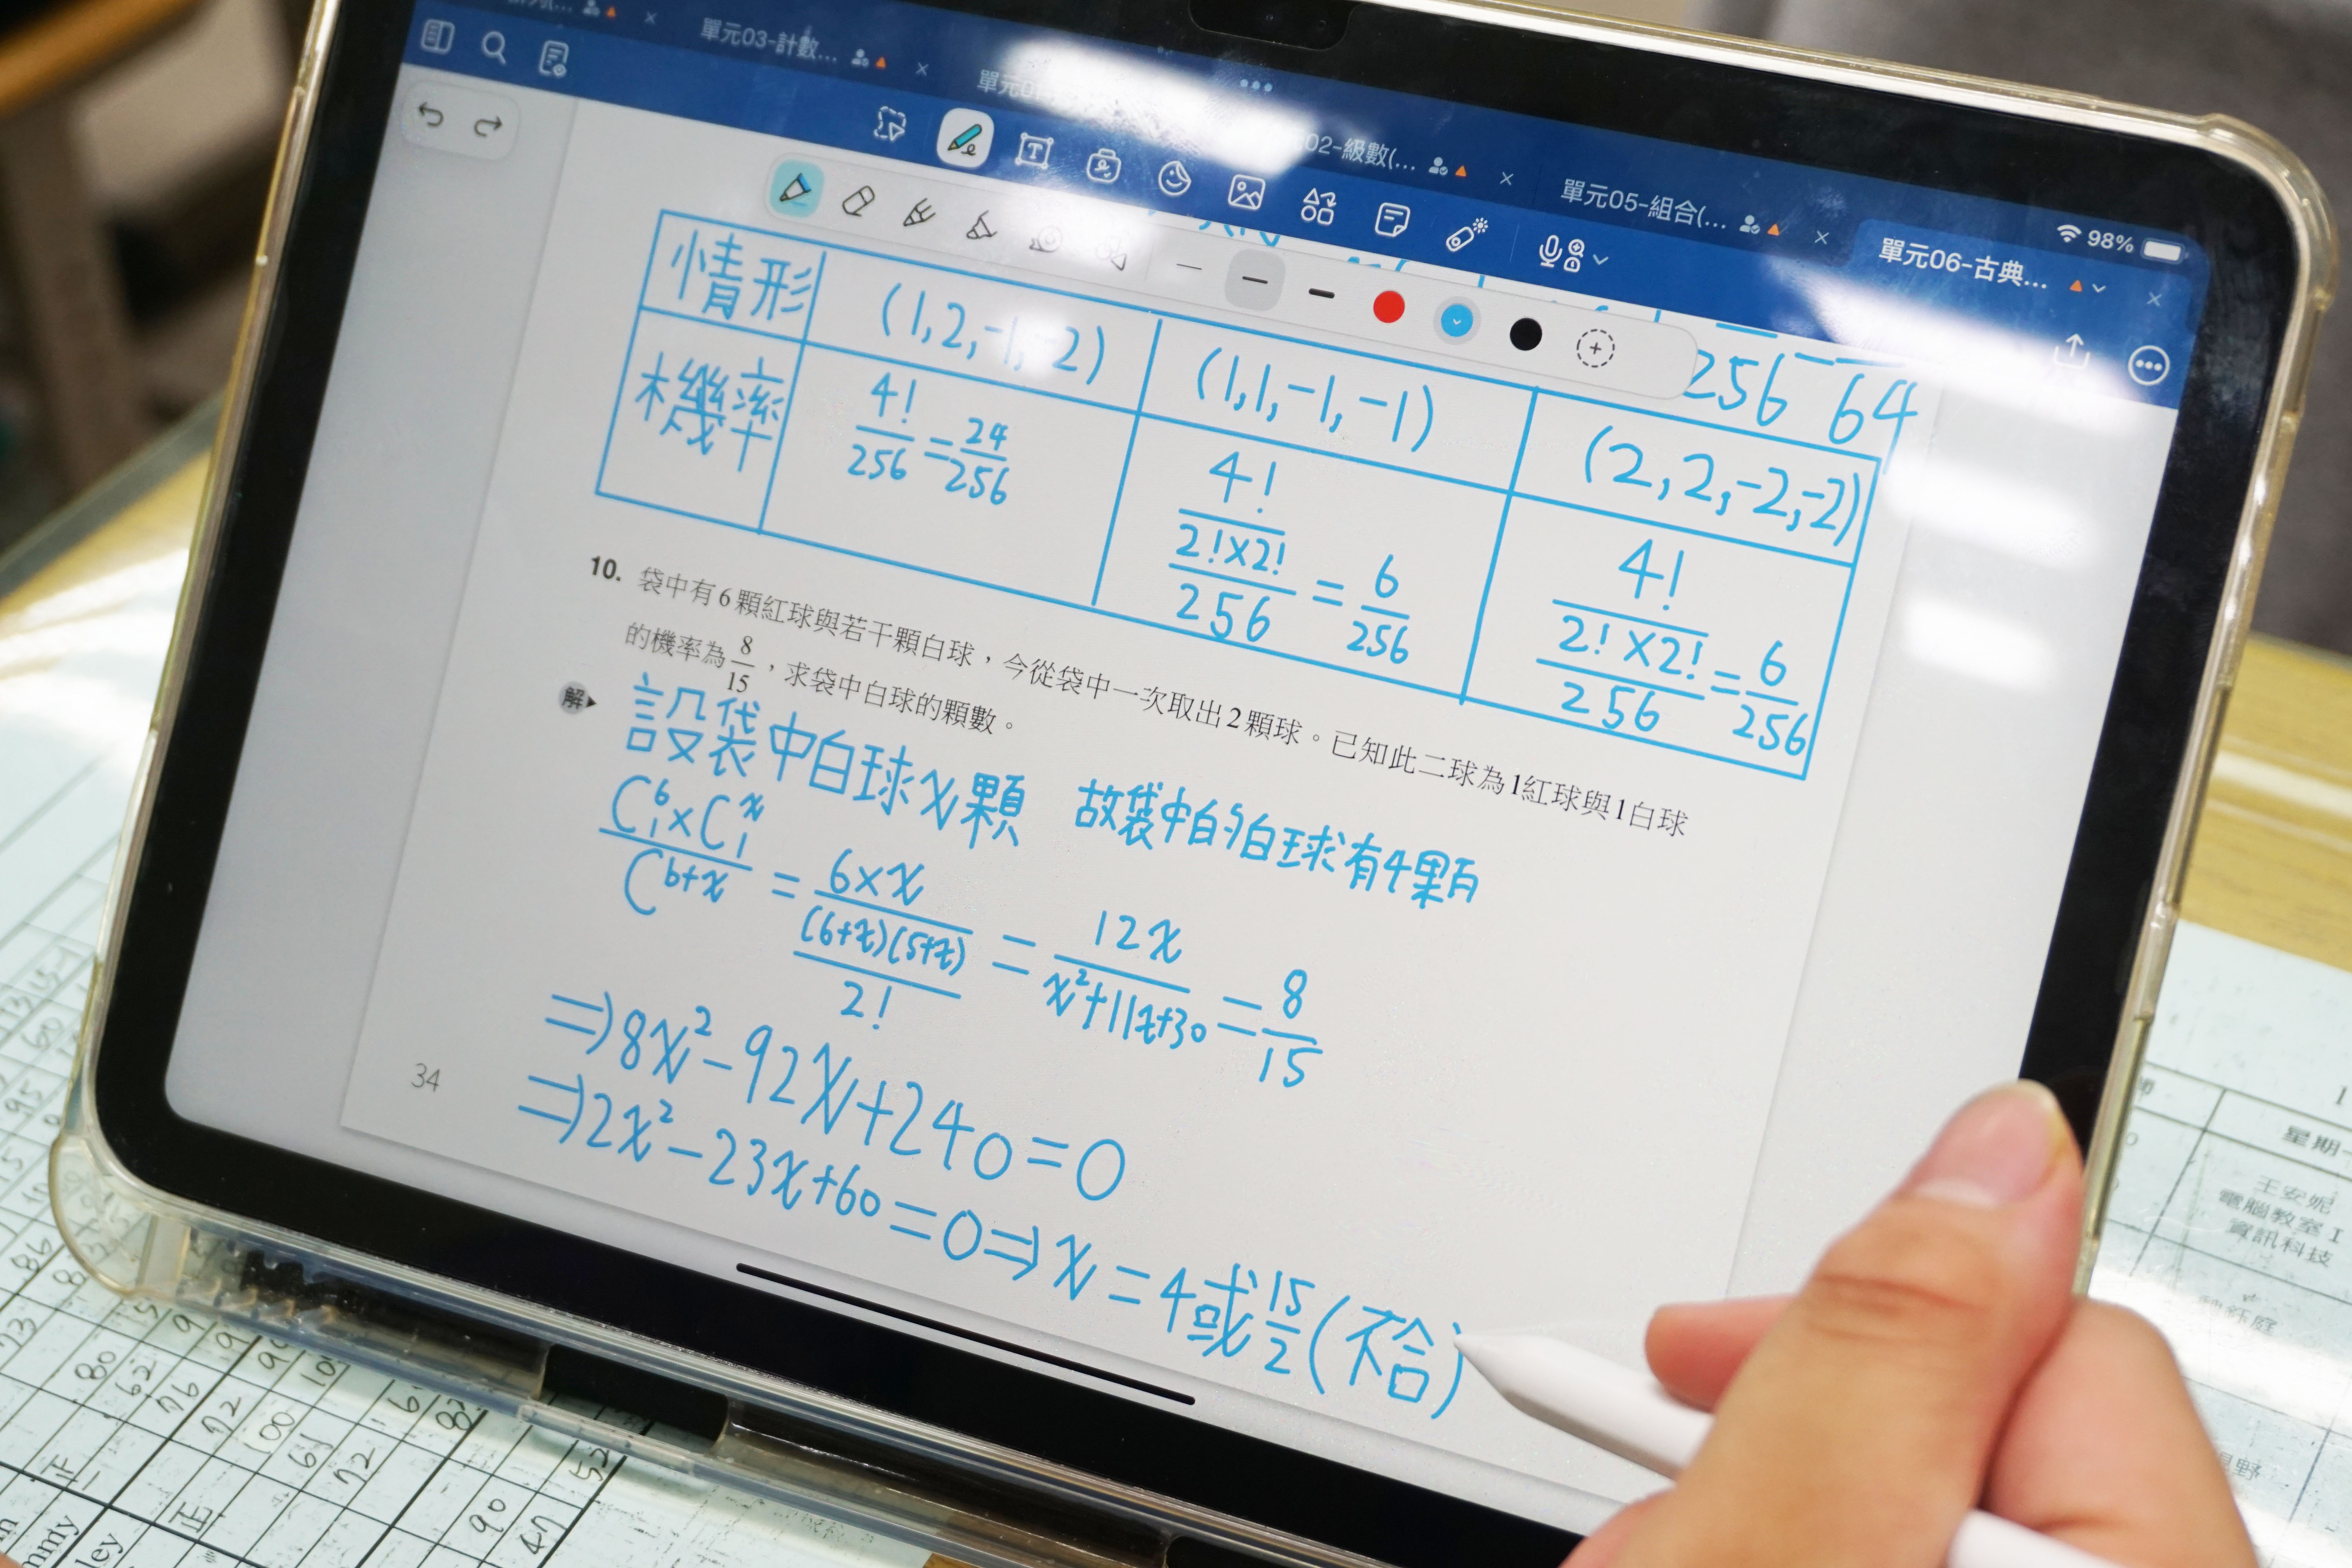 單元03-計數...
02-級數(...
單元05-組合(...
單元06-古典...
98%
256 64
情形 (1,2,-1,-2) (1,1,-1,-1) (2,2,-2,-2)
機率 4!/256=24/256 4!/2!×2!/256=6/256 4!/2!×2!/256=6/256
10. 袋中有6顆紅球與若干顆白球，今從袋中一次取出2顆球。已知此二球為1紅球與1白球
的機率為8/15，求袋中白球的顆數。
解
設袋中白球x顆 故袋中的白球有4顆
C⁶₁×Cˣ₁/C⁶⁺ˣ=6×x/(6+x)(5+x)/2!=12x/x²+11x+30=8/15
⇒8x²-92x+240=0
⇒2x²-23x+60=0⇒x=4或15/2(不合)
34
星期
王安妮
電腦教室I
資訊科技
80
62
76
72
100
61
72
82
90
47
52
正
正